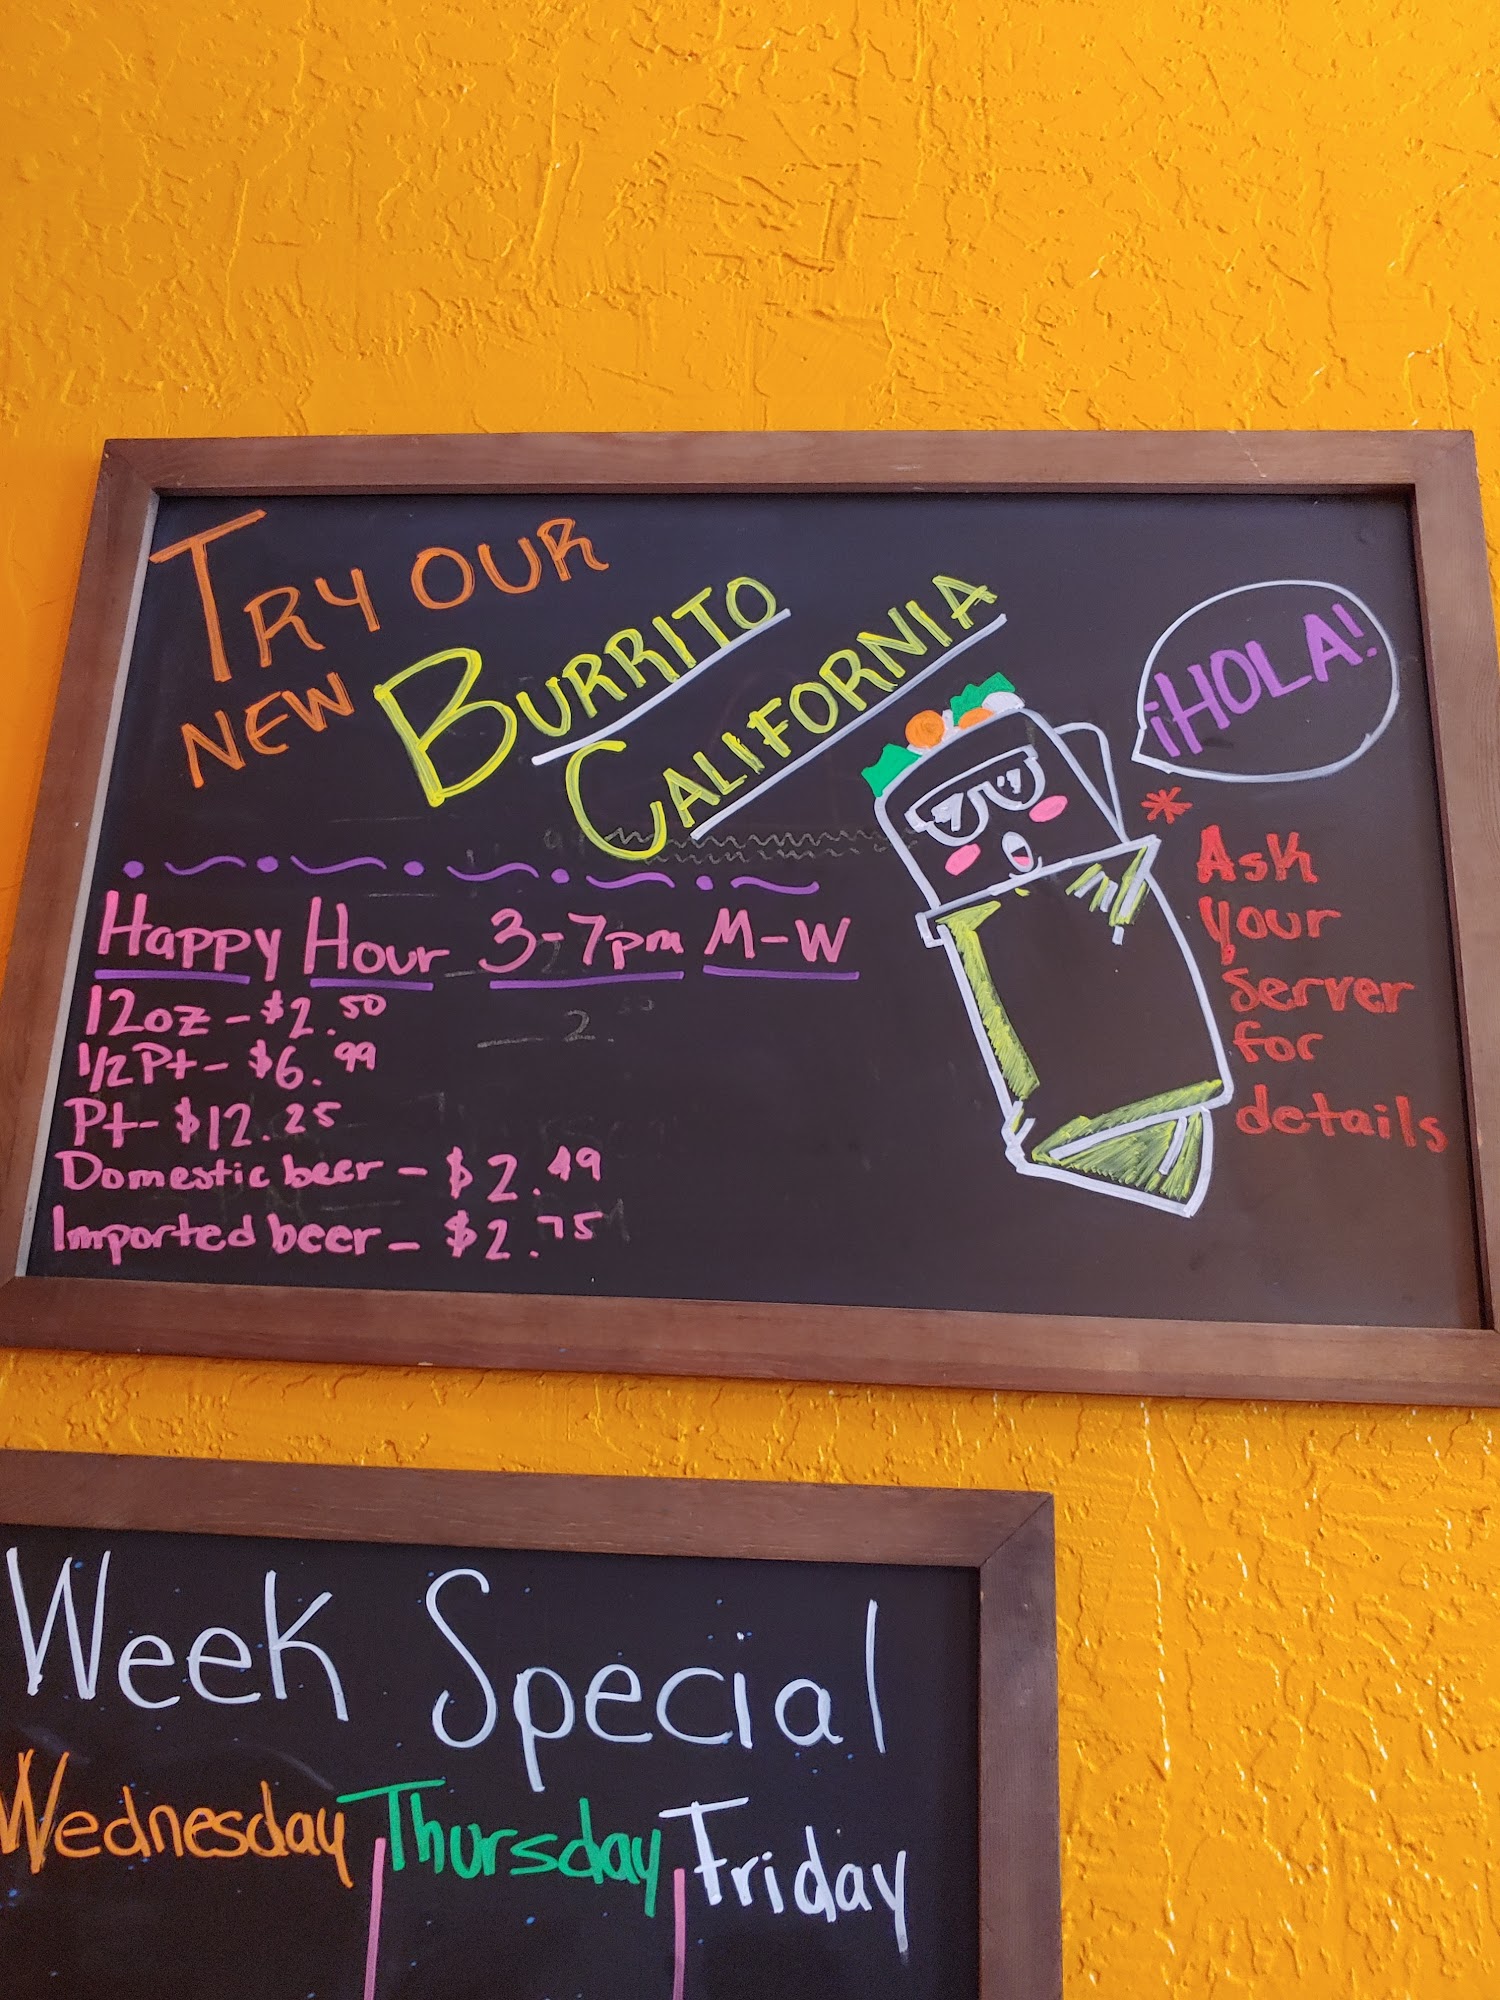 TRY OUR
NEW BURRITO
CALIFORNIA
¡HOLA!
* Ask
your
server
for
details
Happy Hour 3-7pm M-W
12oz - $2.50
1/2 Pt - $6.99
Pt - $12.25
Domestic beer - $2.49
Imported beer - $2.75
Week Special
Wednesday Thursday Friday